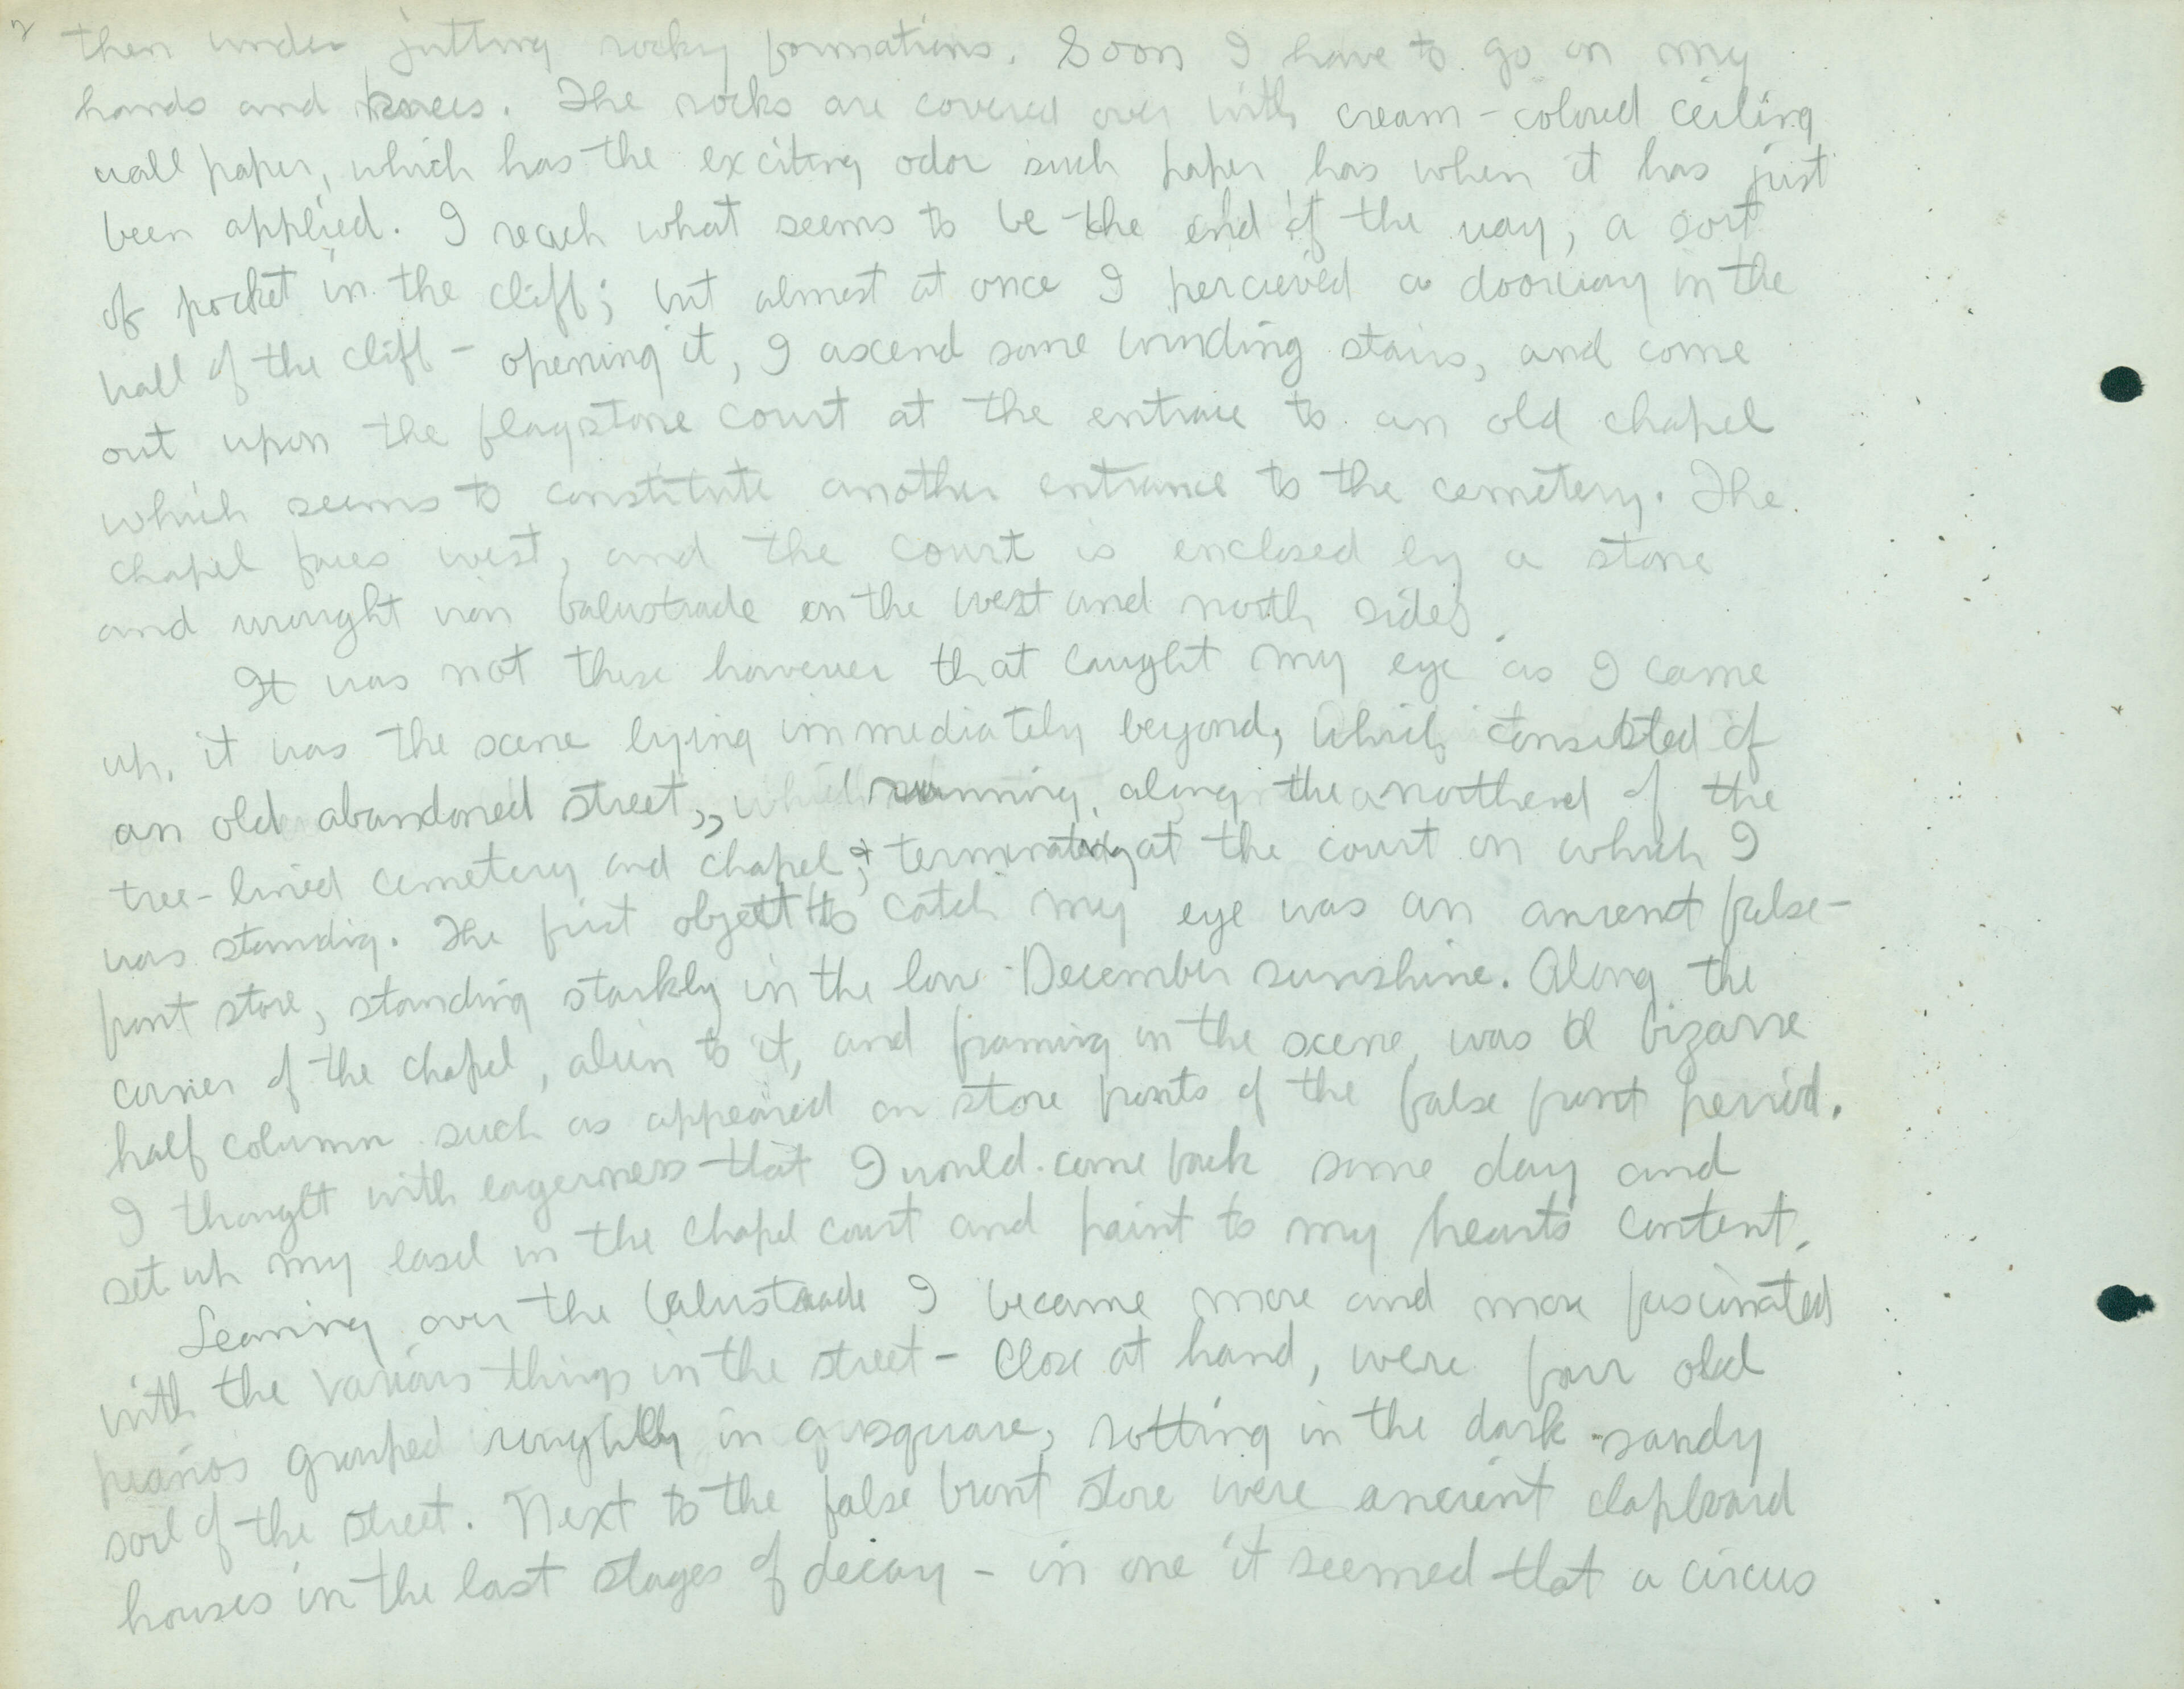 2
then under jutting rocky formations. Soon I have to go on my
hands and knees. The rocks are covered over with cream-colored ceiling
wall paper, which has the exciting odor such paper has when it has just
been applied. I reach what seems to be the end of the way, a sort
of pocket in the cliff; but almost at once I percieved a doorway in the
wall of the cliff - opening it, I ascend some winding stairs, and come
out upon the flagstone court at the entrace to an old chapel
which seems to constitute another entrance to the cemetery. The
chapel faces west, and the court is enclosed by a stone
and wrought iron balustrade on the west and north sides.
It was not these however that caught my eye as I came
up, it was the scene lying immediately beyond, which consisted of
an old abandoned street, running along the north end of the
tree-lined cemetery and chapel, & terminating at the court on which I
was standing. The first object to catch my eye was an ancient false-
front store, standing starkly in the low December sunshine. Along the
corner of the chapel, alien to it, and framing in the scene, was a bizarre
half column such as appeared on store fronts of the false front period.
I thought with eagerness that I would come back some day and
set up my easel in the chapel court and paint to my hearts content.
Leaning over the balustrade I became more and more fascinated
with the various things in the street - Close at hand, were four old
pianos grouped roughly in a square, rotting in the dark sandy
soil of the street. Next to the false front store were ancient clapboard
houses in the last stages of decay - in one it seemed that a circus